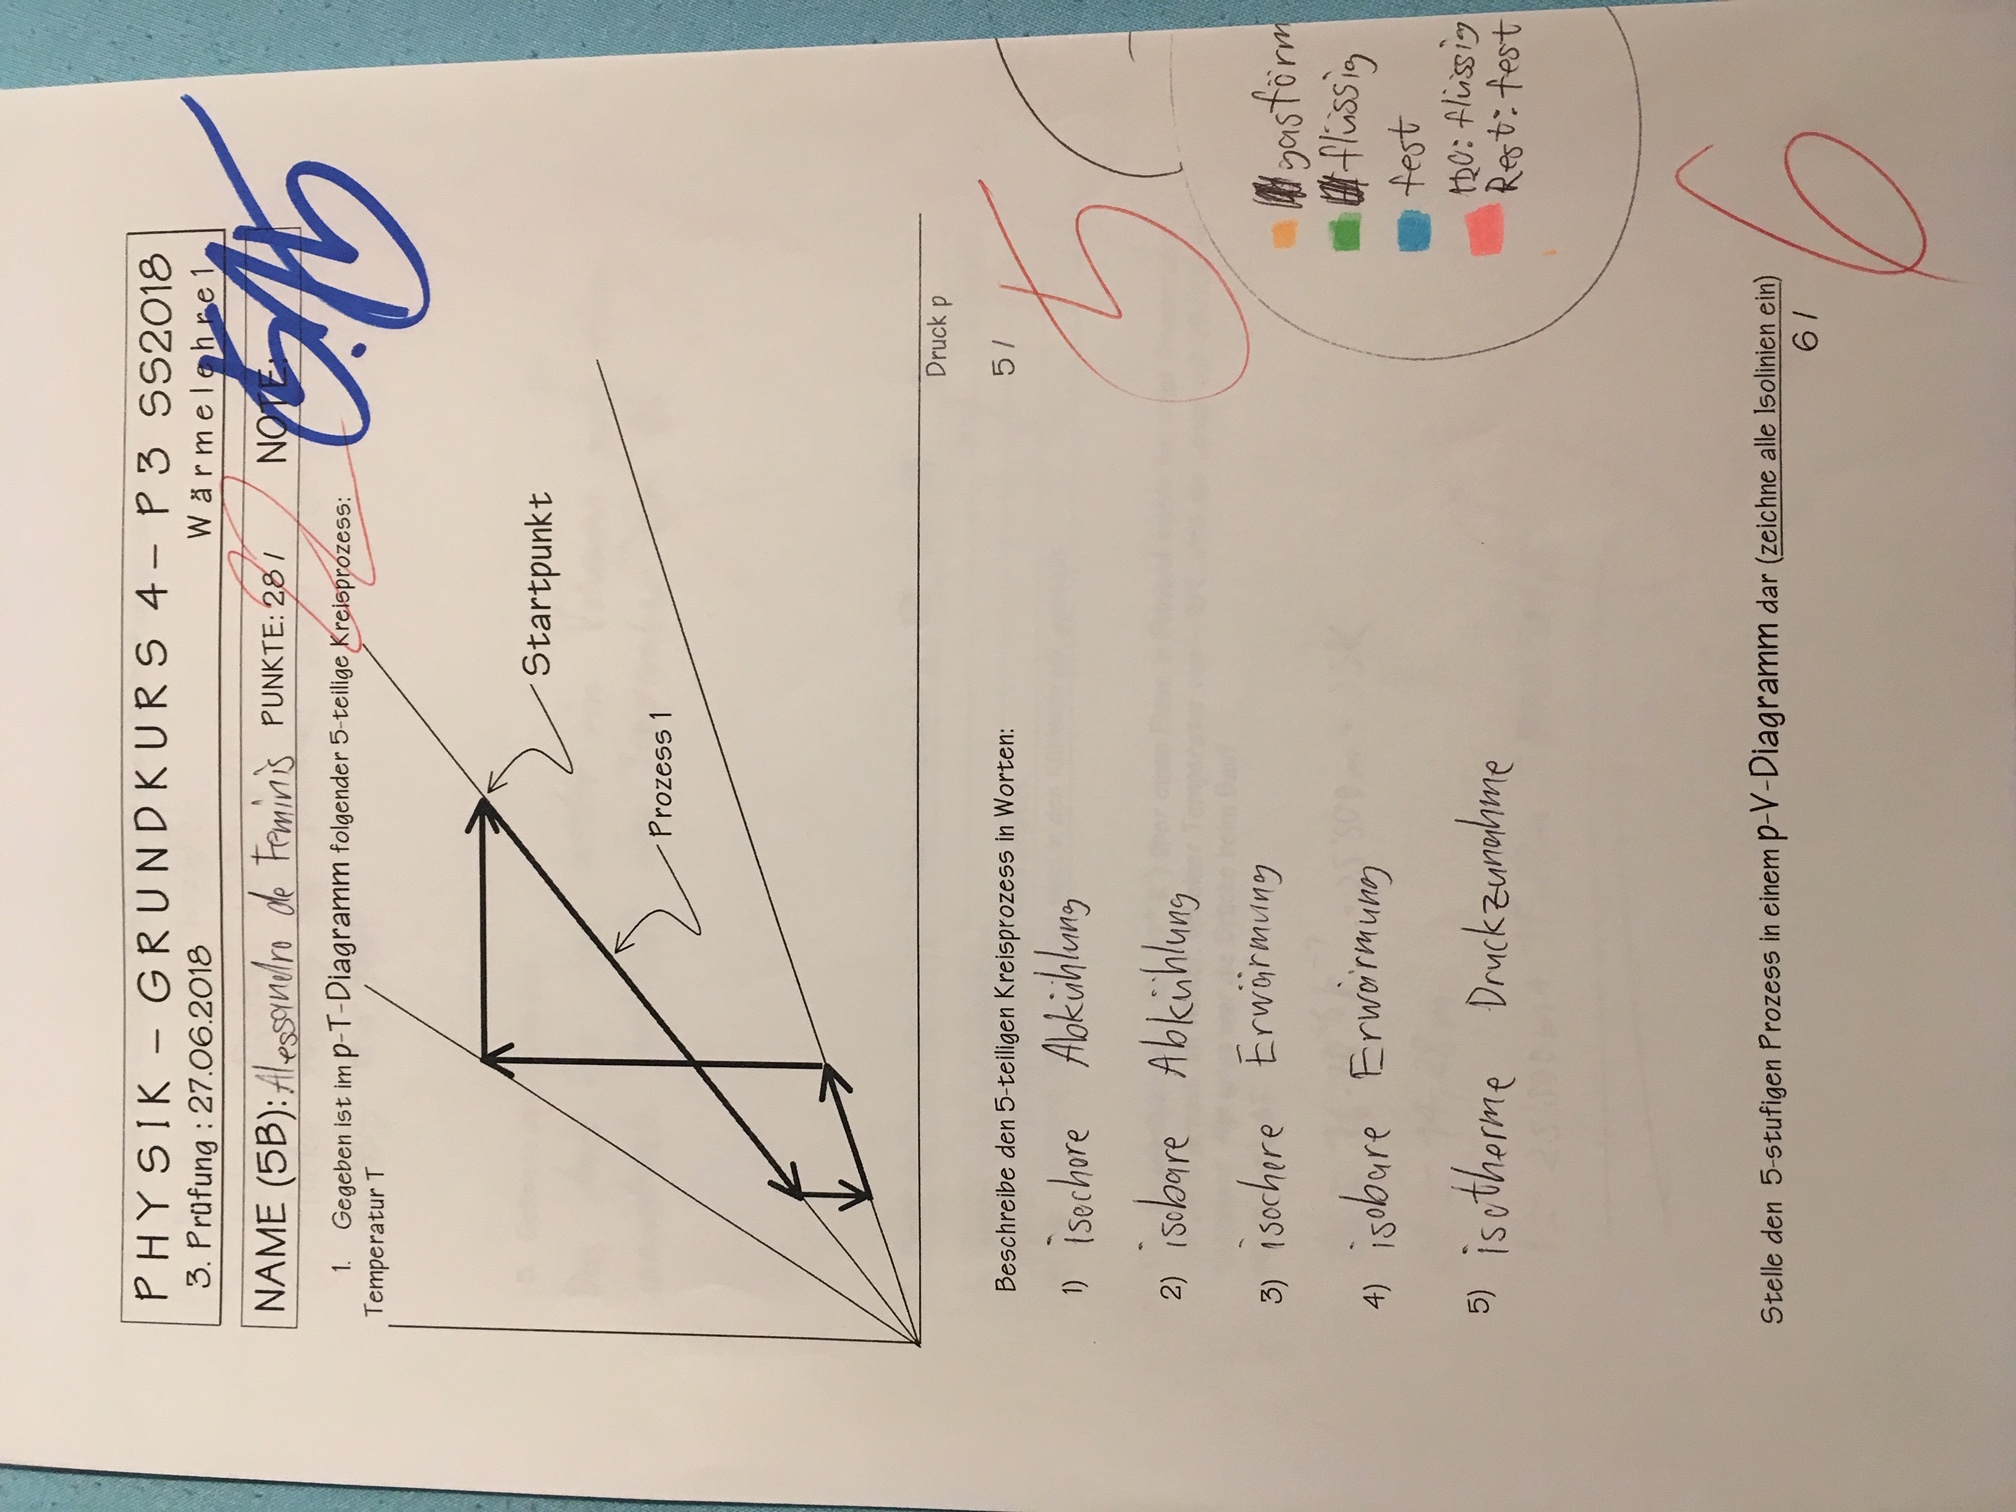 PHYSIK – GRUNDKURS 4 – P3 SS2018
3. Prüfung : 27.06.2018 Wärmelehre1
NAME (5B): Alessandro de Feminis PUNKTE: 28 / 22 NOTE: 5.15
1. Gegeben ist im p-T-Diagramm folgender 5-teilige Kreisprozess:
Temperatur T
Startpunkt
Prozess 1
Druck p
Beschreibe den 5-teiligen Kreisprozess in Worten: 5 / 5
1) isochore Abkühlung
2) isobare Abkühlung
3) isochore Erwärmung
4) isobare Erwärmung
5) isotherme Druckzunahme
gasförm
flüssig
fest
H2O: flüssig
Rest: fest
Stelle den 5-stufigen Prozess in einem p-V-Diagramm dar (zeichne alle Isolinien ein)
6 / 6